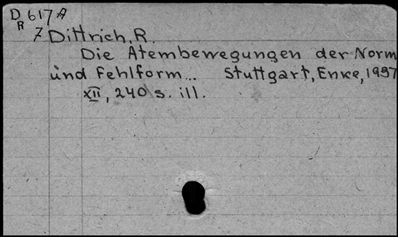 D 617 A
R
7 Dittrich, R.
Die Atembewegungen der Norm
und Fehlform... Stuttgart, Enke, 1957
XII, 240 s. ill.